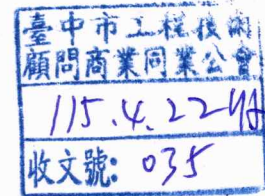 臺中市工程技術
顧問商業同業公會
115.4.22
收文號: 035